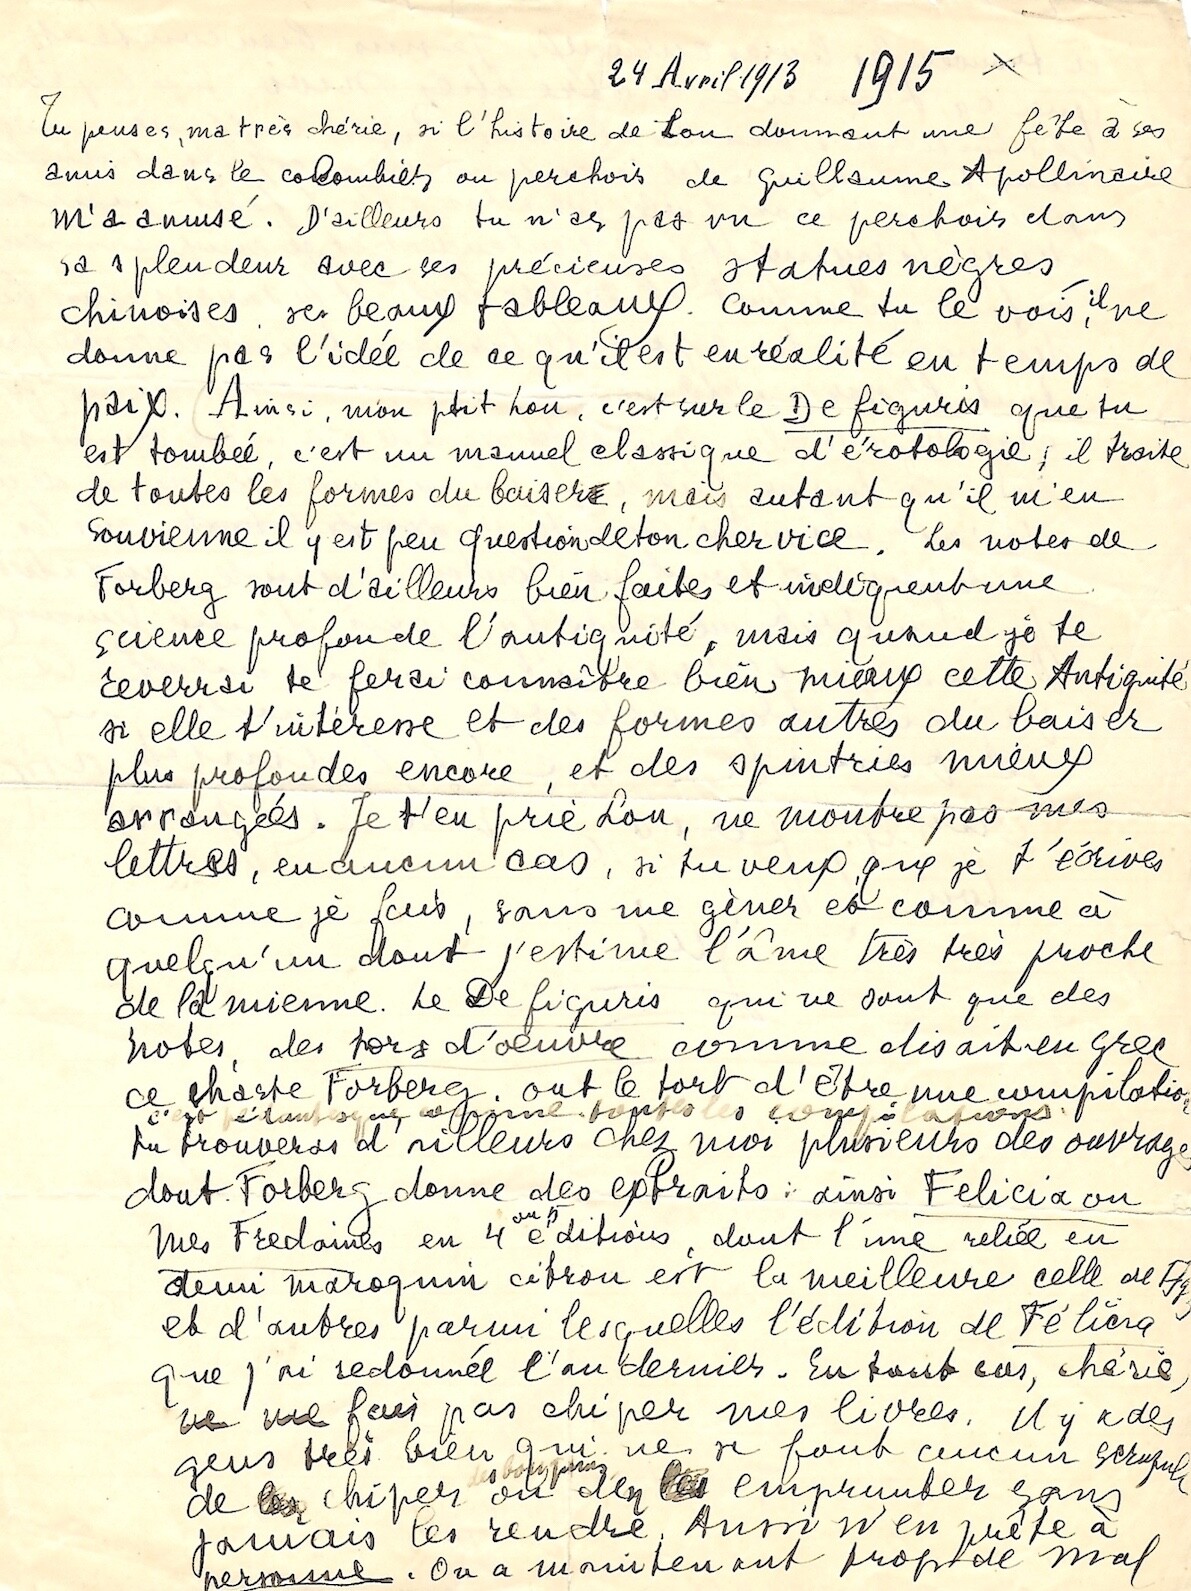 24 Avril 1913 1915
Tu penses, ma très chérie, si l'histoire de Lou donnant une fête à ses
amis dans le colombier ou perchoir de Guillaume Apollinaire
m'a amusé. D'ailleurs tu n'as pas vu ce perchoir dans
sa splendeur avec ses précieuses statues nègres
chinoises, ses beaux tableaux. Comme tu le vois, il ne
donne pas l'idée de ce qu'il est en réalité en temps de
paix. Ainsi, mon ptit Lou, c'est sur le De figuris que tu
est tombée, c'est un manuel classique d'érotologie ; il traite
de toutes les formes du baiser, mais autant qu'il m'en
souvienne il y est peu question de ton cher vice. Les notes de
Forberg sont d'ailleurs bien faites et indiquent une
science profonde de l'antiquité, mais quand je te
reverrai te ferai connaître bien mieux cette Antiquité
si elle t'intéresse et des formes autres du baiser
plus profondes encore, et des spintries mieux
arrangées. Je t'en prie Lou, ne montre pas mes
lettres, en aucun cas, si tu veux que je t'écrives
comme je fais, sans me gêner et comme à
quelqu'un dont j'estime l'âme très très proche
de la mienne. Le De figuris qui ne sont que des
notes, des hors d'œuvre comme disait en grec
ce chaste Forberg. ont le tort d'être une compilation
c'est comme toutes les compilations.
tu trouveras d'ailleurs chez moi plusieurs des ouvrages
dont Forberg donne des extraits : ainsi Felicia ou
Mes Fredaines en 4 ou 5 éditions, dont l'une reliée en
demi maroquin citron est la meilleure celle de
et d'autres parmi lesquelles l'édition de Félicia
que j'ai redonnée l'an dernier. En tout cas, chérie,
ne me fais pas chiper mes livres. Il y a des
gens très bien qui ne se font aucun scrupule
de chiper des bouquins ou de les emprunter sans
jamais les rendre. Aussi n'en prête à
personne. On a maintenant trop de mal